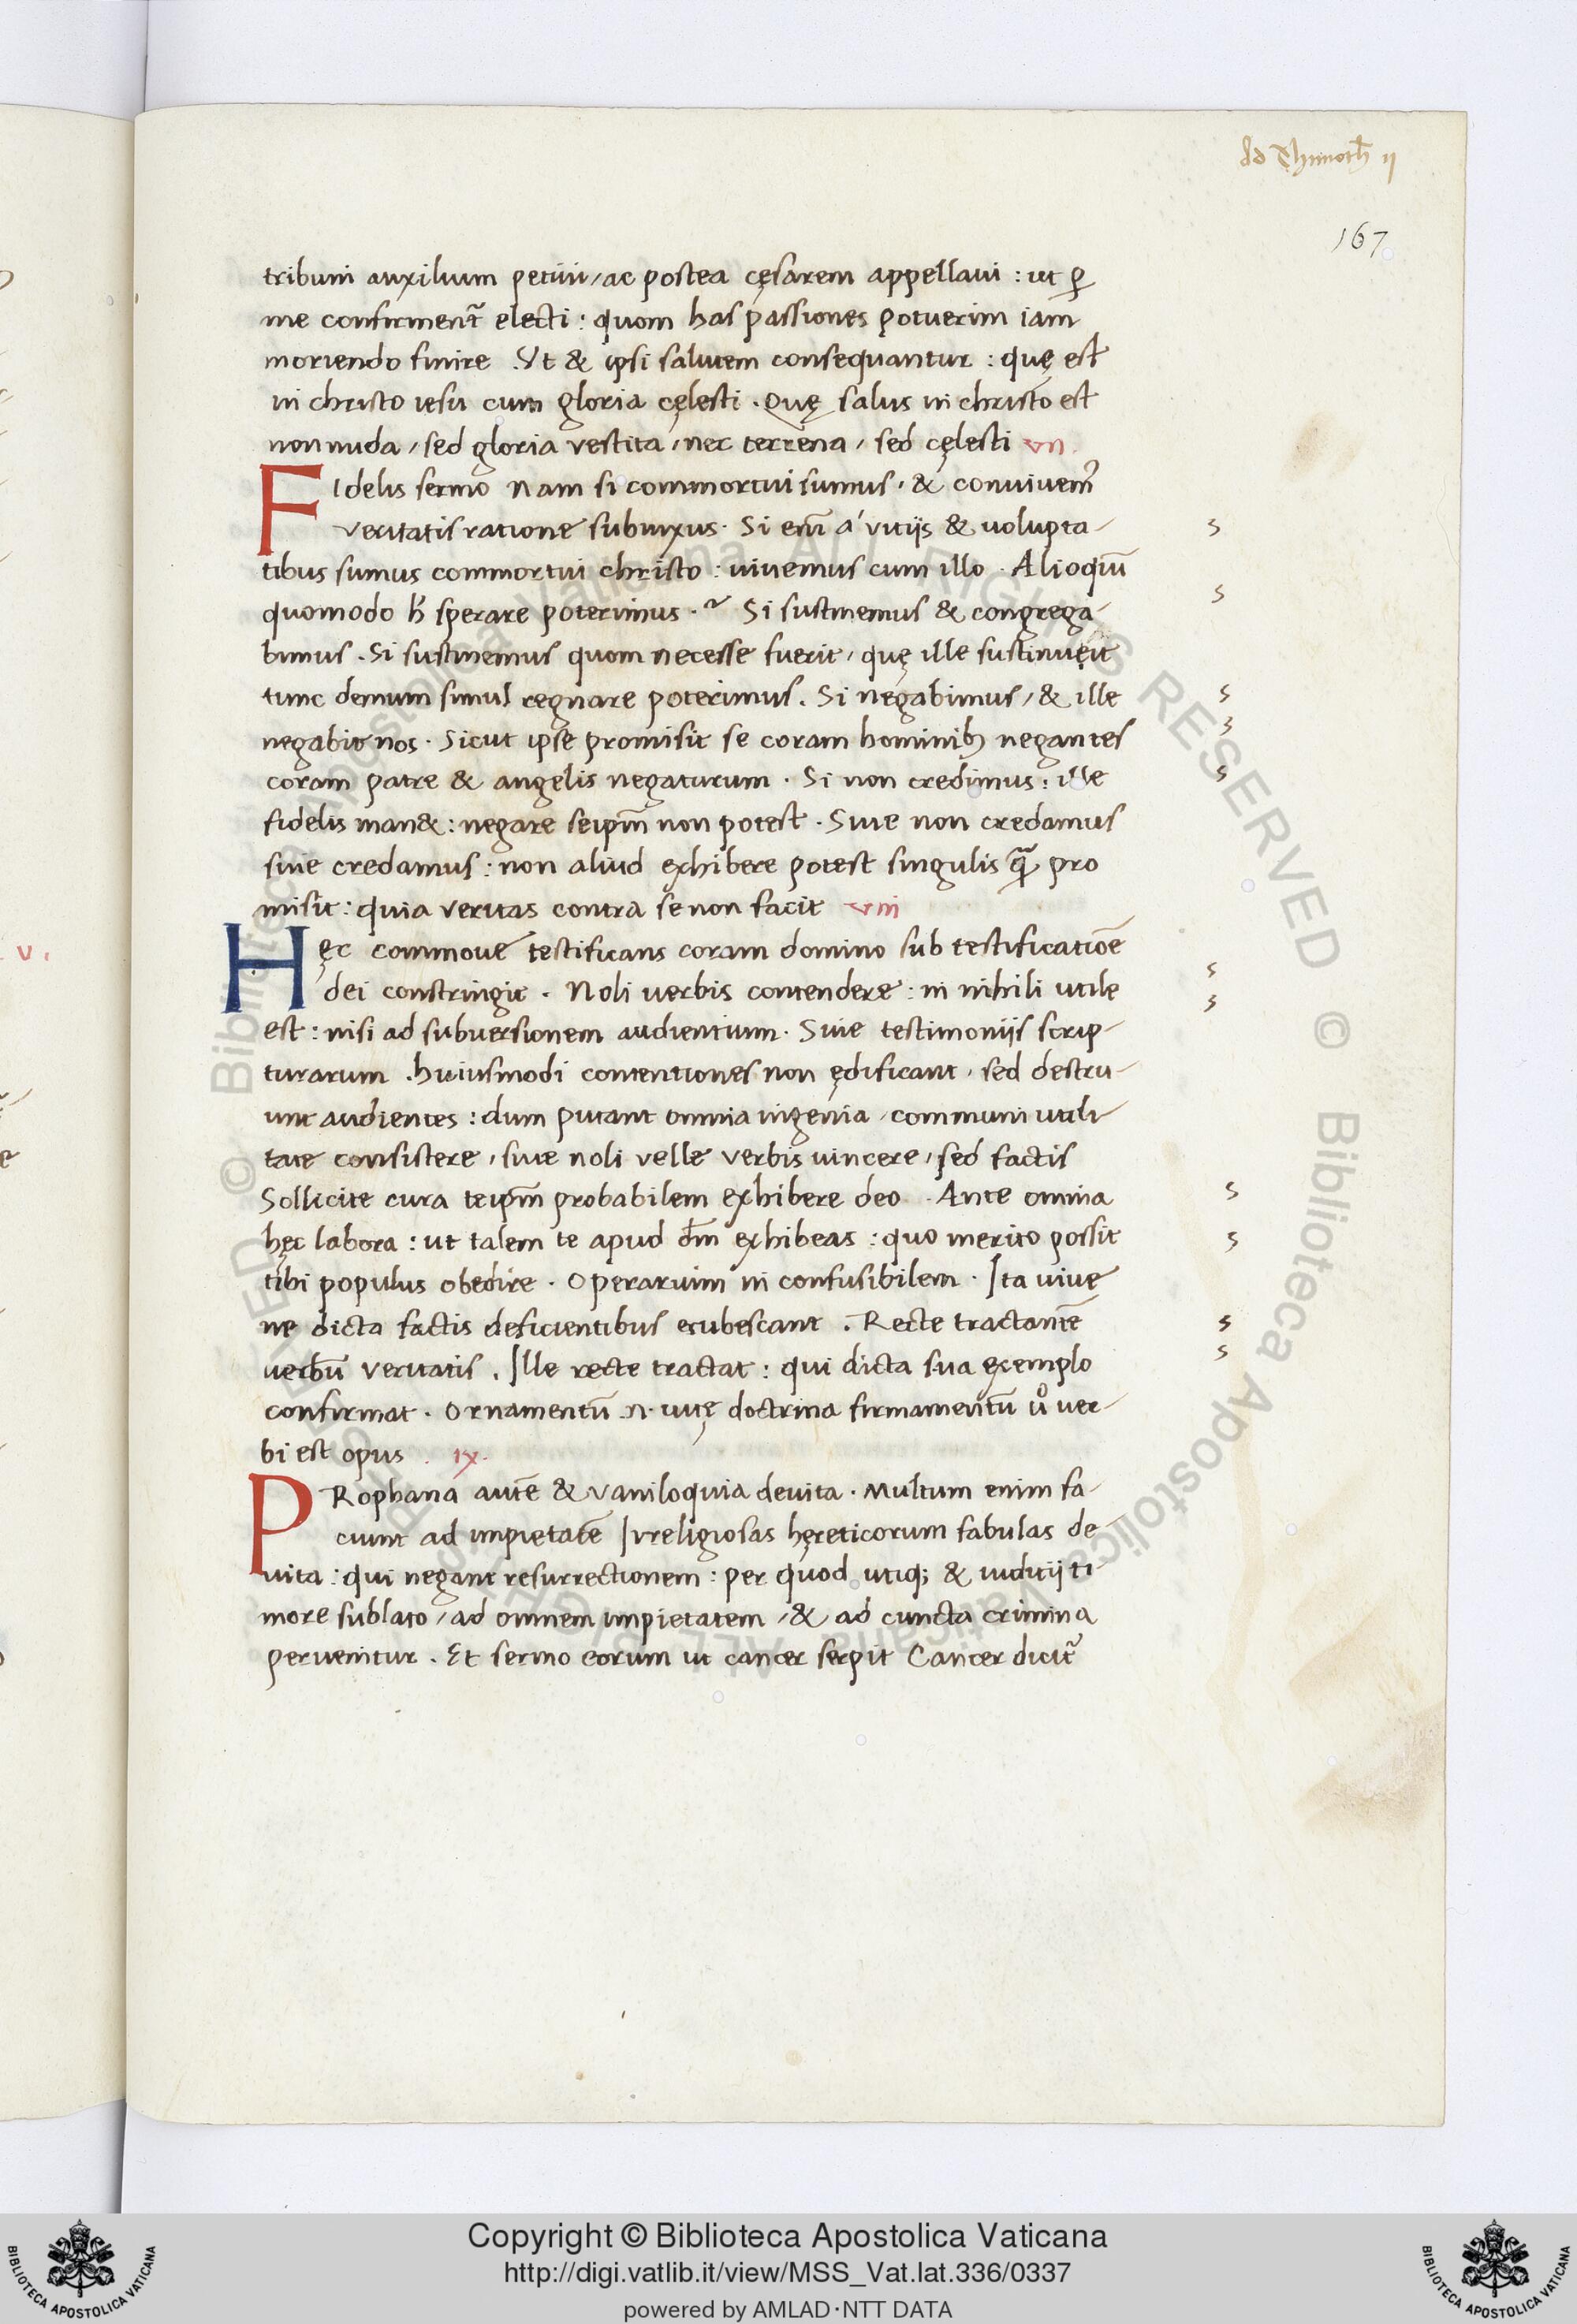 ad Thimoth̄ ii
167
tribuni auxilium petiui / ac postea cęsarem appellaui : ut ꝑ
me confirment᷑ electi : quom has passiones potuerim iam
moriendo finire . Vt & ipsi salutem consequantur : quę est
in christo iesu cum gloria cęlesti . Quę salus in christo est
non nuda / sed gloria vestita / nec terrena / sed cęlesti vii.
FIdelis sermo Nam si commortui sumus / & conuiuem᷒
veritatis ratione subnixus . Si eni᷒ á vitijs & uolupta-
tibus sumus commortui christo : uiuemus cum illo . Alioquī
quomodo h̄ sperare poterimus .~ Si sustinemus & congrega-
bimus . Si sustinemus quom necesse fuerit / quę ille sustinuęit
tunc demum simul regnare poterimus . Si negabimus / & ille
negabit nos . Sicut ipse promisit se coram hominibꝫ negantes
coram patre & angelis negaturum . Si non credimus : ille
fidelis man& : negare seipm̄ non potest . Siue non credamus
siue credamus : non aliud exhibere potest singulis q̄ꝫ pro
misit : quia veritas contra se non facit viii
Hęc commone testificans coram domino sub testificatiōe
dei constringit . Noli uerbis contendere : in nihili utile
est : nisi ad subuersionem audientium . Siue testimonijs scrip-
turarum . huiusmodi contentiones non ędificant / sed destru-
unt audientes : dum putant omnia ingenia / communi utili-
tate consistere / siue noli velle verbis uincere / sed factis
Sollicite cura teipm̄ probabilem exhibere deo . Ante omnia
hęc labora : ut talem te apud dm̄ exhibeas : quo merito possit
tibi populus obedire . Operarium in confusibilem . Ita uiuę
ne dicta factis deficientibus erubescant . Recte tractantē
uerbū veritatis . Ille recte tractat : qui dicta sua exemplo
confirmat . Ornamentū .n. uitę doctrina firmamentū uͦ ver-
bi est opus . ix.
PRophana autē & vaniloquia deuita . Multum enim fa-
ciunt ad impietatē Irreligiosas hęreticorum fabulas de-
uita : qui negant resurrectionem : per quod utiqꝫ & iuditij ti-
more sublato / ad omnem impietatem / & ad cuncta crimina
peruenitur . Et sermo eorum ut cancer serpit Cancer dicit᷑
v.
© Biblioteca Apostolica Vaticana ALL RIGHTS RESERVED
Copyright © Biblioteca Apostolica Vaticana
http://digi.vatlib.it/view/MSS_Vat.lat.336/0337
powered by AMLAD·NTT DATA
BIBLIOTECA APOSTOLICA VATICANA
BIBLIOTECA APOSTOLICA VATICANA